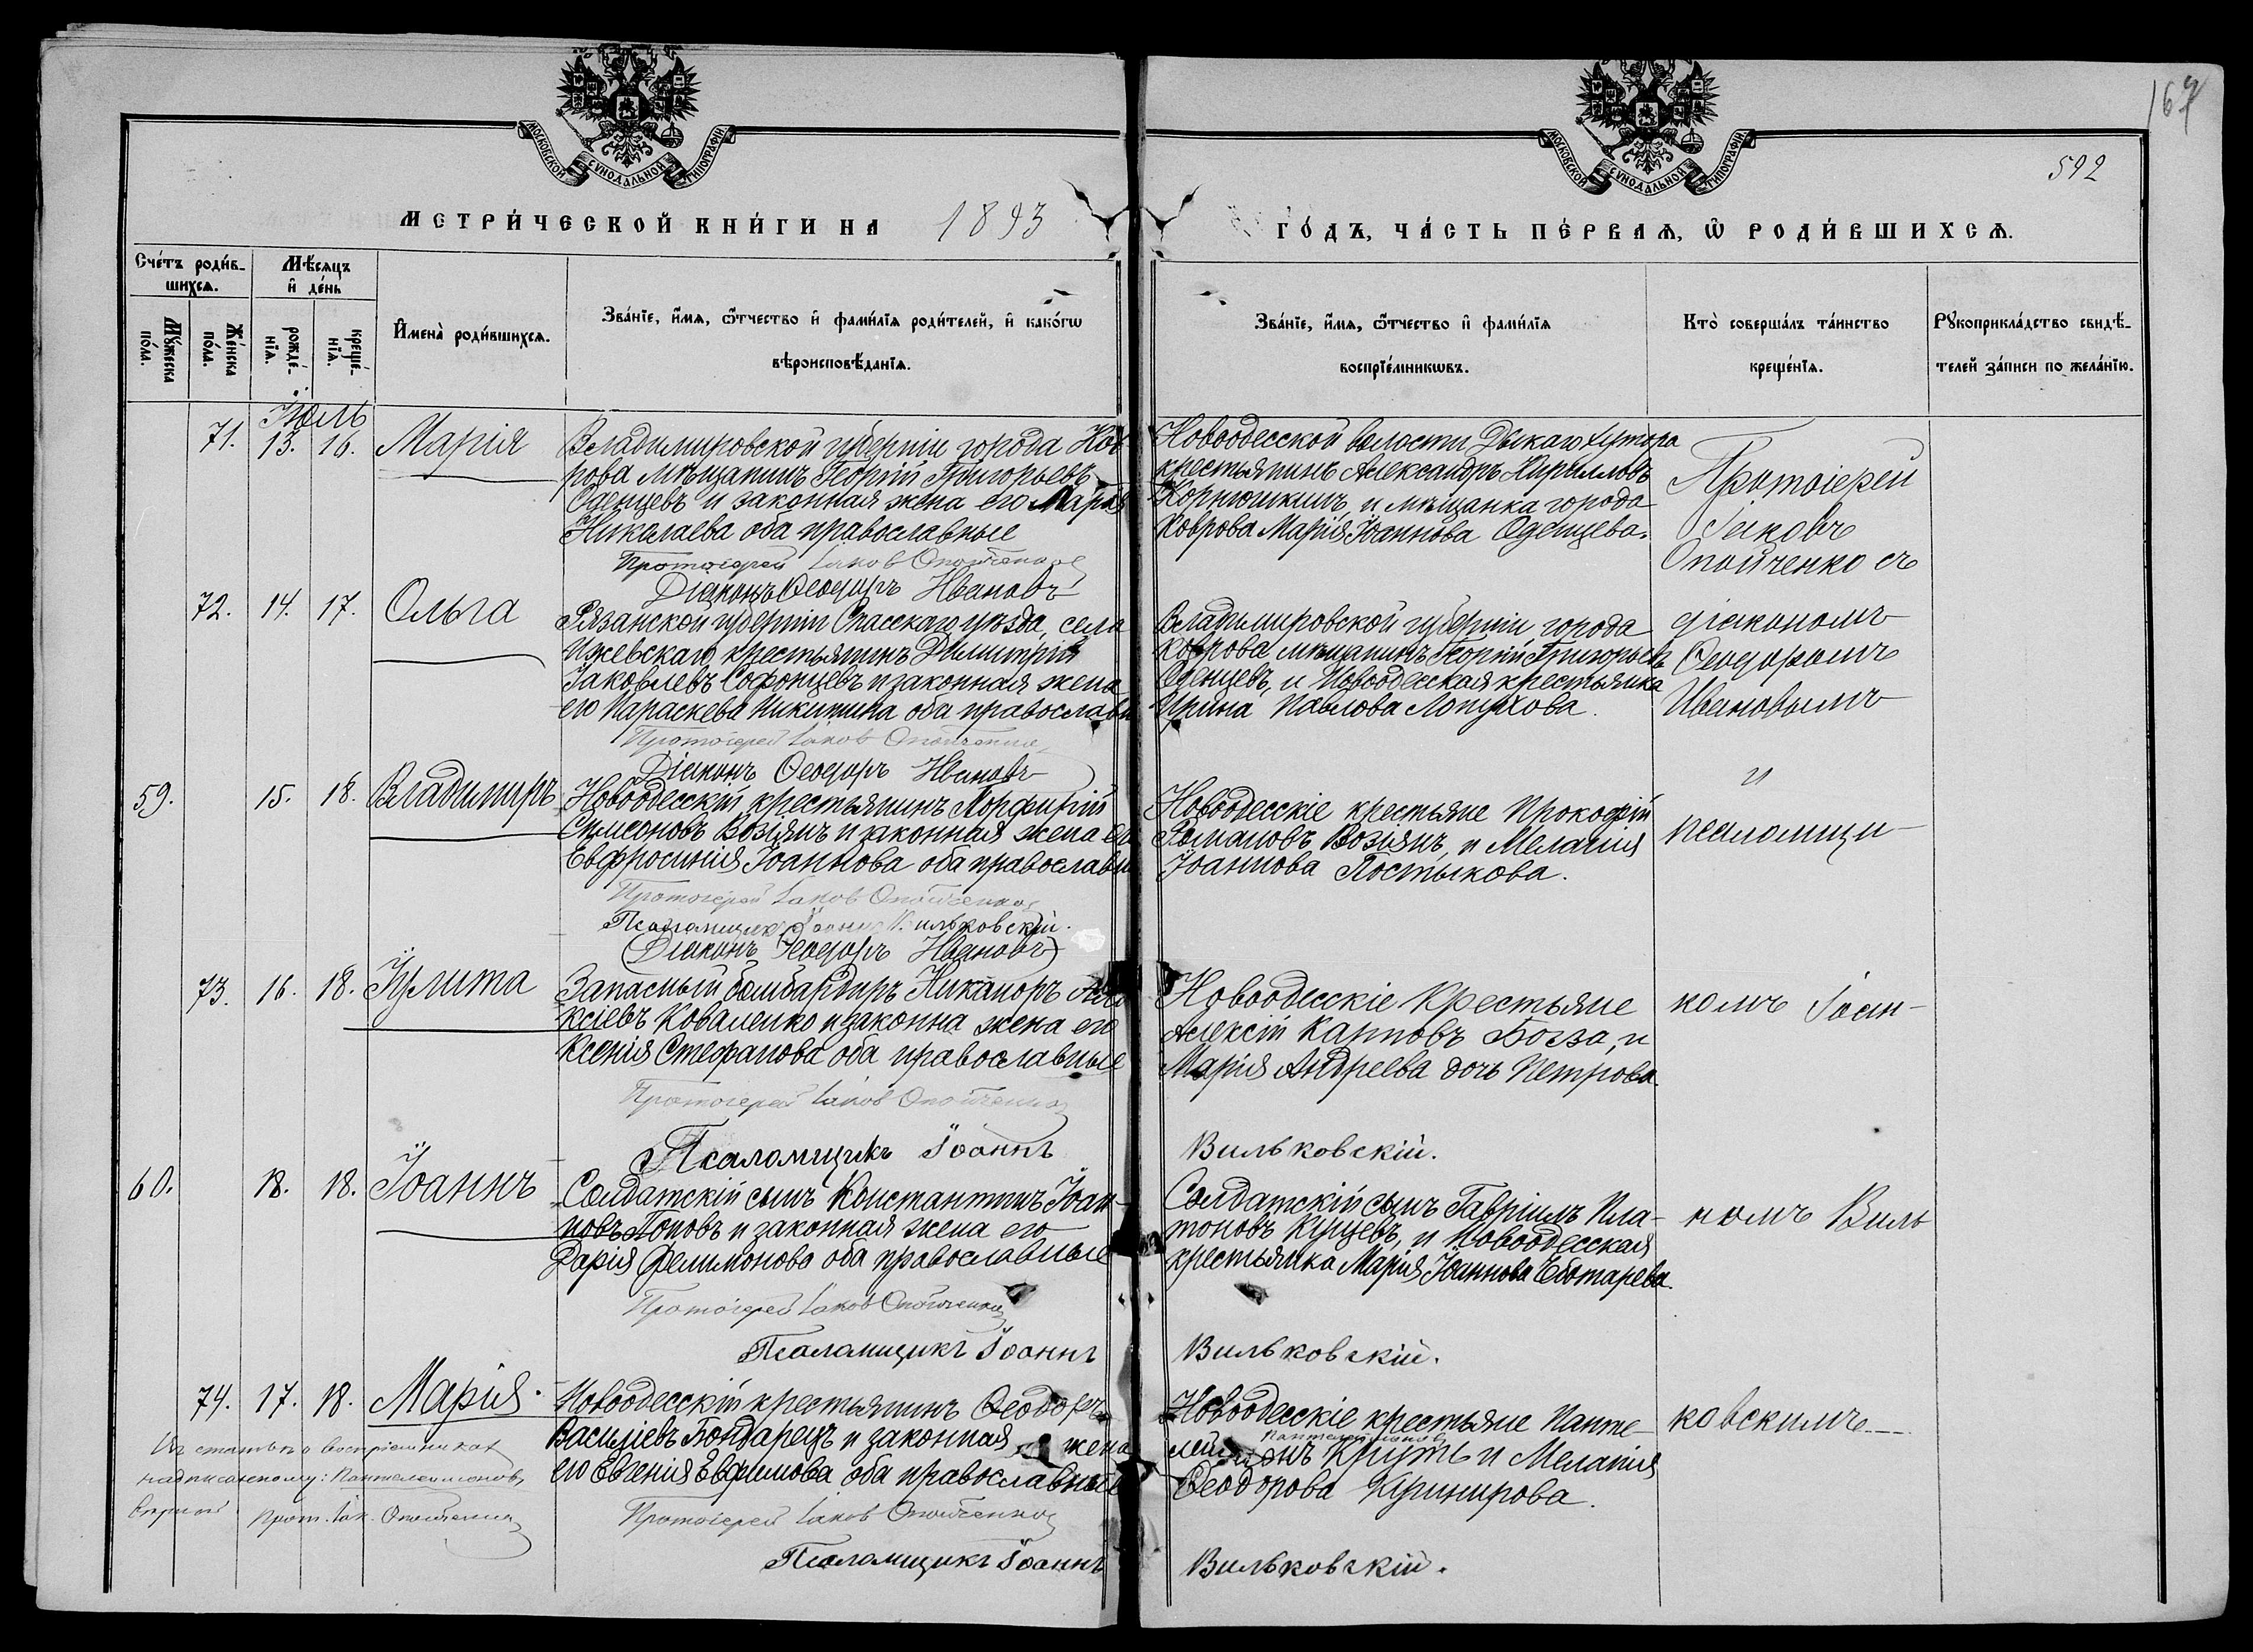 МОСКОВСКОЙ СѴНОДАЛЬНОЙ ТИПОГРАФІИ
МОСКОВСКОЙ СѴНОДАЛЬНОЙ ТИПОГРАФІИ
167
592
МЕТРИ́ЧЕСКОЙ КНИ́ГИ НА 1893 ГО́ДЪ, ЧА́СТЬ ПЕ́РВАѦ, Ѡ҆ РОДИ́ВШИХСѦ.
Сче́тъ роди́в-
шихсѧ.
Мѣ́сѧцъ
и҆ де́нь
Мꙋ́жеска
по́ла.
Же́нска
по́ла.
рожде́-
нїѧ.
креще́-
нїѧ.
И҆мена̀ роди́вшихсѧ.
Зва́нїе, и҆́мѧ, ѻ҆́тчество и҆ фами́лїѧ роди́телей, и҆ како́гѡ
вѣроисповѣ́данїѧ.
Зва́нїе, и҆́мѧ, ѻ҆́тчество и҆ фами́лїѧ
воспрїе́мникѡвъ.
Кто̀ соверша́лъ та́инство
креще́нїѧ.
Рꙋкоприкла́дство свидѣ́-
телей за́писи по жела́нїю.
Іюль
71. 13. 16. Марія
Владимировской губерніи города Ков-
рова мѣщанинъ Георгій Григорьевъ
Оденцевъ и законная жена его Марія
Николаева оба православные
Протоіерей Іаков Опойченко
Діаконъ Ѳеодоръ Ивановъ
Новоодесской волости Дикаго хутора
крестьянинъ Александръ Кирилловъ
Корнюшкинъ, и мѣщанка города
Коврова Марія Іоаннова Оденцева.
Протоіерей
Іаковъ
Опойченко съ
72. 14. 17. Ольга
Рязанской губерніи Спасскаго уѣзда, села
Ижевскаго крестьянинъ Димитрій
Іаковлевъ Софонцевъ и законная жена
его Параскева Никитина оба православн
Протоіерей Іаков Опойченко
Діаконъ Ѳеодоръ Ивановъ
Владимировской губерніи города
Коврова мѣщанинъ Георгій Григорьевъ
Оденцевъ, и Новоодесская крестьянка
Ирина Павлова Лопухова.
діакономъ
Ѳеодоромъ
Ивановымъ
и
59. 15. 18. Владимиръ
Новоодесскій крестьянинъ Порфирій
Симеоновъ Возіянъ и законная жена его
Евфросинія Іоаннова оба православн
Протоіерей Іаков Опойченко
Псаломщикъ Іоаннъ Вильковскій.
Діаконъ Ѳеодоръ Ивановъ
Новоодесскіе крестьяне Прокофій
Романовъ Возіянъ, и Меланія
Іоаннова Постыкова.
псаломщи-
73. 16. 18. Іулита
Запасный бомбардиръ Никаноръ Але
ксіевъ Коваленко и законна жена его
Ксенія Стефанова оба православные
Протоіерей Іаков Опойченко
Псаломщикъ Іоаннъ Вильковскій.
Новоодесскіе крестьяне
Алексій Карповъ Боса, и
Марія Андреева дочь Петрова
комъ Іоан-
60. 18. 18. Іоаннъ
Солдатскій сынъ Константинъ Іоан-
новъ Поповъ и законная жена его
Дарія Филимонова оба православные
Протоіерей Іаков Опойченко
Псаломщикъ Іоаннъ Вильковскій.
Солдатскій сынъ Гавріилъ Пла-
тоновъ Купцевъ, и Новоодесская
крестьянка Марія Іоаннова Еботарева
номъ Виль
74. 17. 18. Марія.
Новоодесскій крестьянинъ Ѳеодоръ
Василіевъ Бондарецъ и законная жена
его Евгенія Евфимова оба православные
Протоіерей Іаков Опойченко
Псаломщикъ Іоаннъ Вильковскій.
Новоодесскіе крестьяне Панте-
Пантелеимонов
леимонъ Круть и Меланія
Ѳеодорова Кушнирова.
ковскимъ
Въ статьѣ о воспріемниках
надписанному: Пантелеимонов,
вѣрить
Прот. Іак. Опойченко